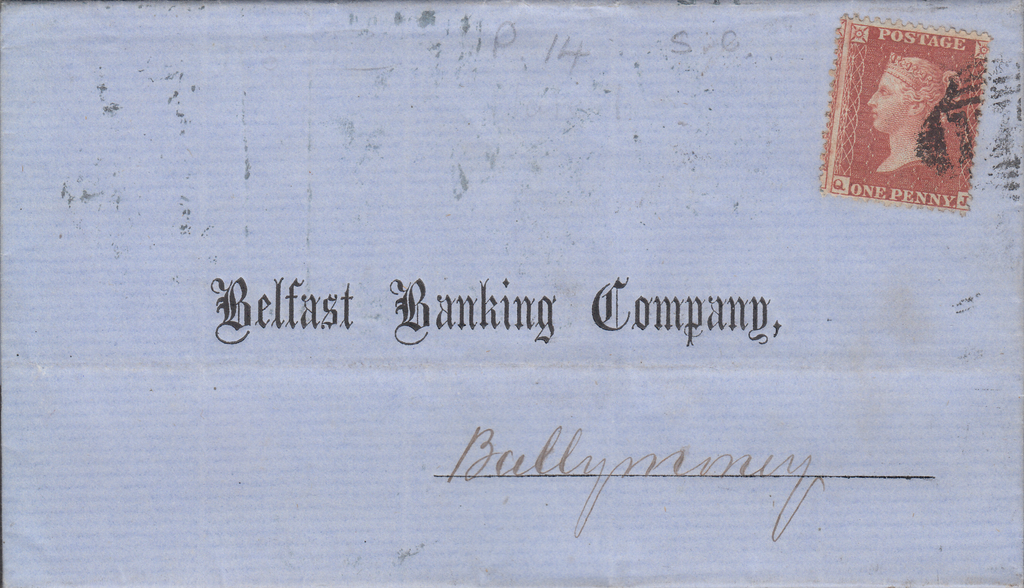 P 14 S.C.
POSTAGE
ONE PENNY
Q J
Belfast Banking Company,
Ballymoney